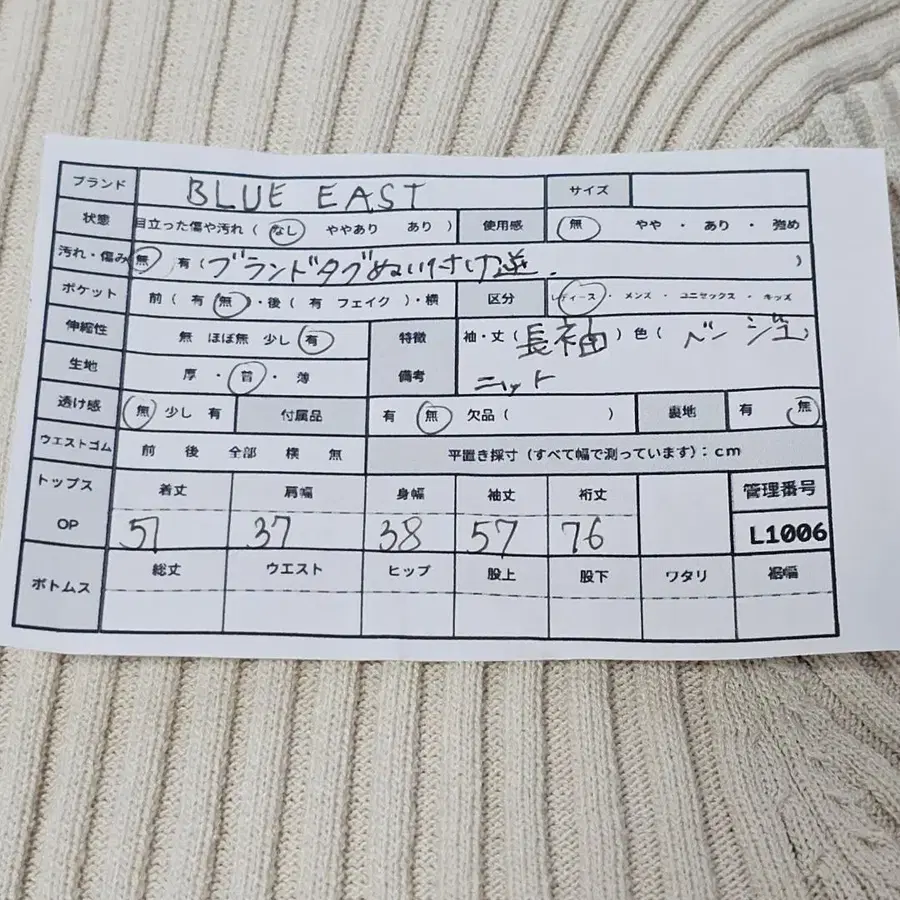 ブランド BLUE EAST サイズ
状態 目立った傷や汚れ ( なし ややあり あり ) 使用感 無 やや ・ あり ・ 強め
汚れ・傷み 無 有 (ブランドタグぬい付け逆. )
ポケット 前 ( 有 無 )・後 ( 有 フェイク )・横 区分 レディース ・ メンズ ・ ユニセックス ・ キッズ
伸縮性 無 ほぼ無 少し 有 特徴 袖・丈 ( 長袖 ) 色 ( ベージュ )
生地 厚 ・ 普 ・ 薄 備考 ニット
透け感 無 少し 有 付属品 有 無 欠品 ( ) 裏地 有 無
ウエストゴム 前 後 全部 横 無 平置き採寸 (すべて幅で測っています) : cm
トップス 着丈 肩幅 身幅 袖丈 裄丈 管理番号
OP 51 37 38 57 76 L1006
ボトムス 総丈 ウエスト ヒップ 股上 股下 ワタリ 裾幅